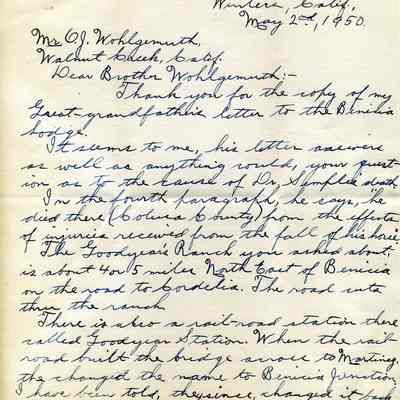 Winters, Calif.,
May 2nd, 1950.
Mr. O.J. Wohlgemuth,
Walnut Creek, Calif.
Dear Brother Wohlgemuth:-
Thank you for the copy of my
Great-grandfather's letter to the Benicia
Lodge.
It seems to me, his letter answers
as well as anything could, your quest-
ion as to the cause of Dr. Semple's death.
In the fourth paragraph, he says, he
died there (Colusa County) from the effects
of injuries received from the fall of his horse.
The Goodyear's Ranch you asked about,
is about 4 or 5 miles North East of Benicia
on the road to Cordelia. The road cuts
thru the ranch.
There is also a rail-road station there
called Goodyear Station. When the rail
road built the bridge across to Martinez,
the changed the name to Benicia Junction,
I have been told, they since, changed it back